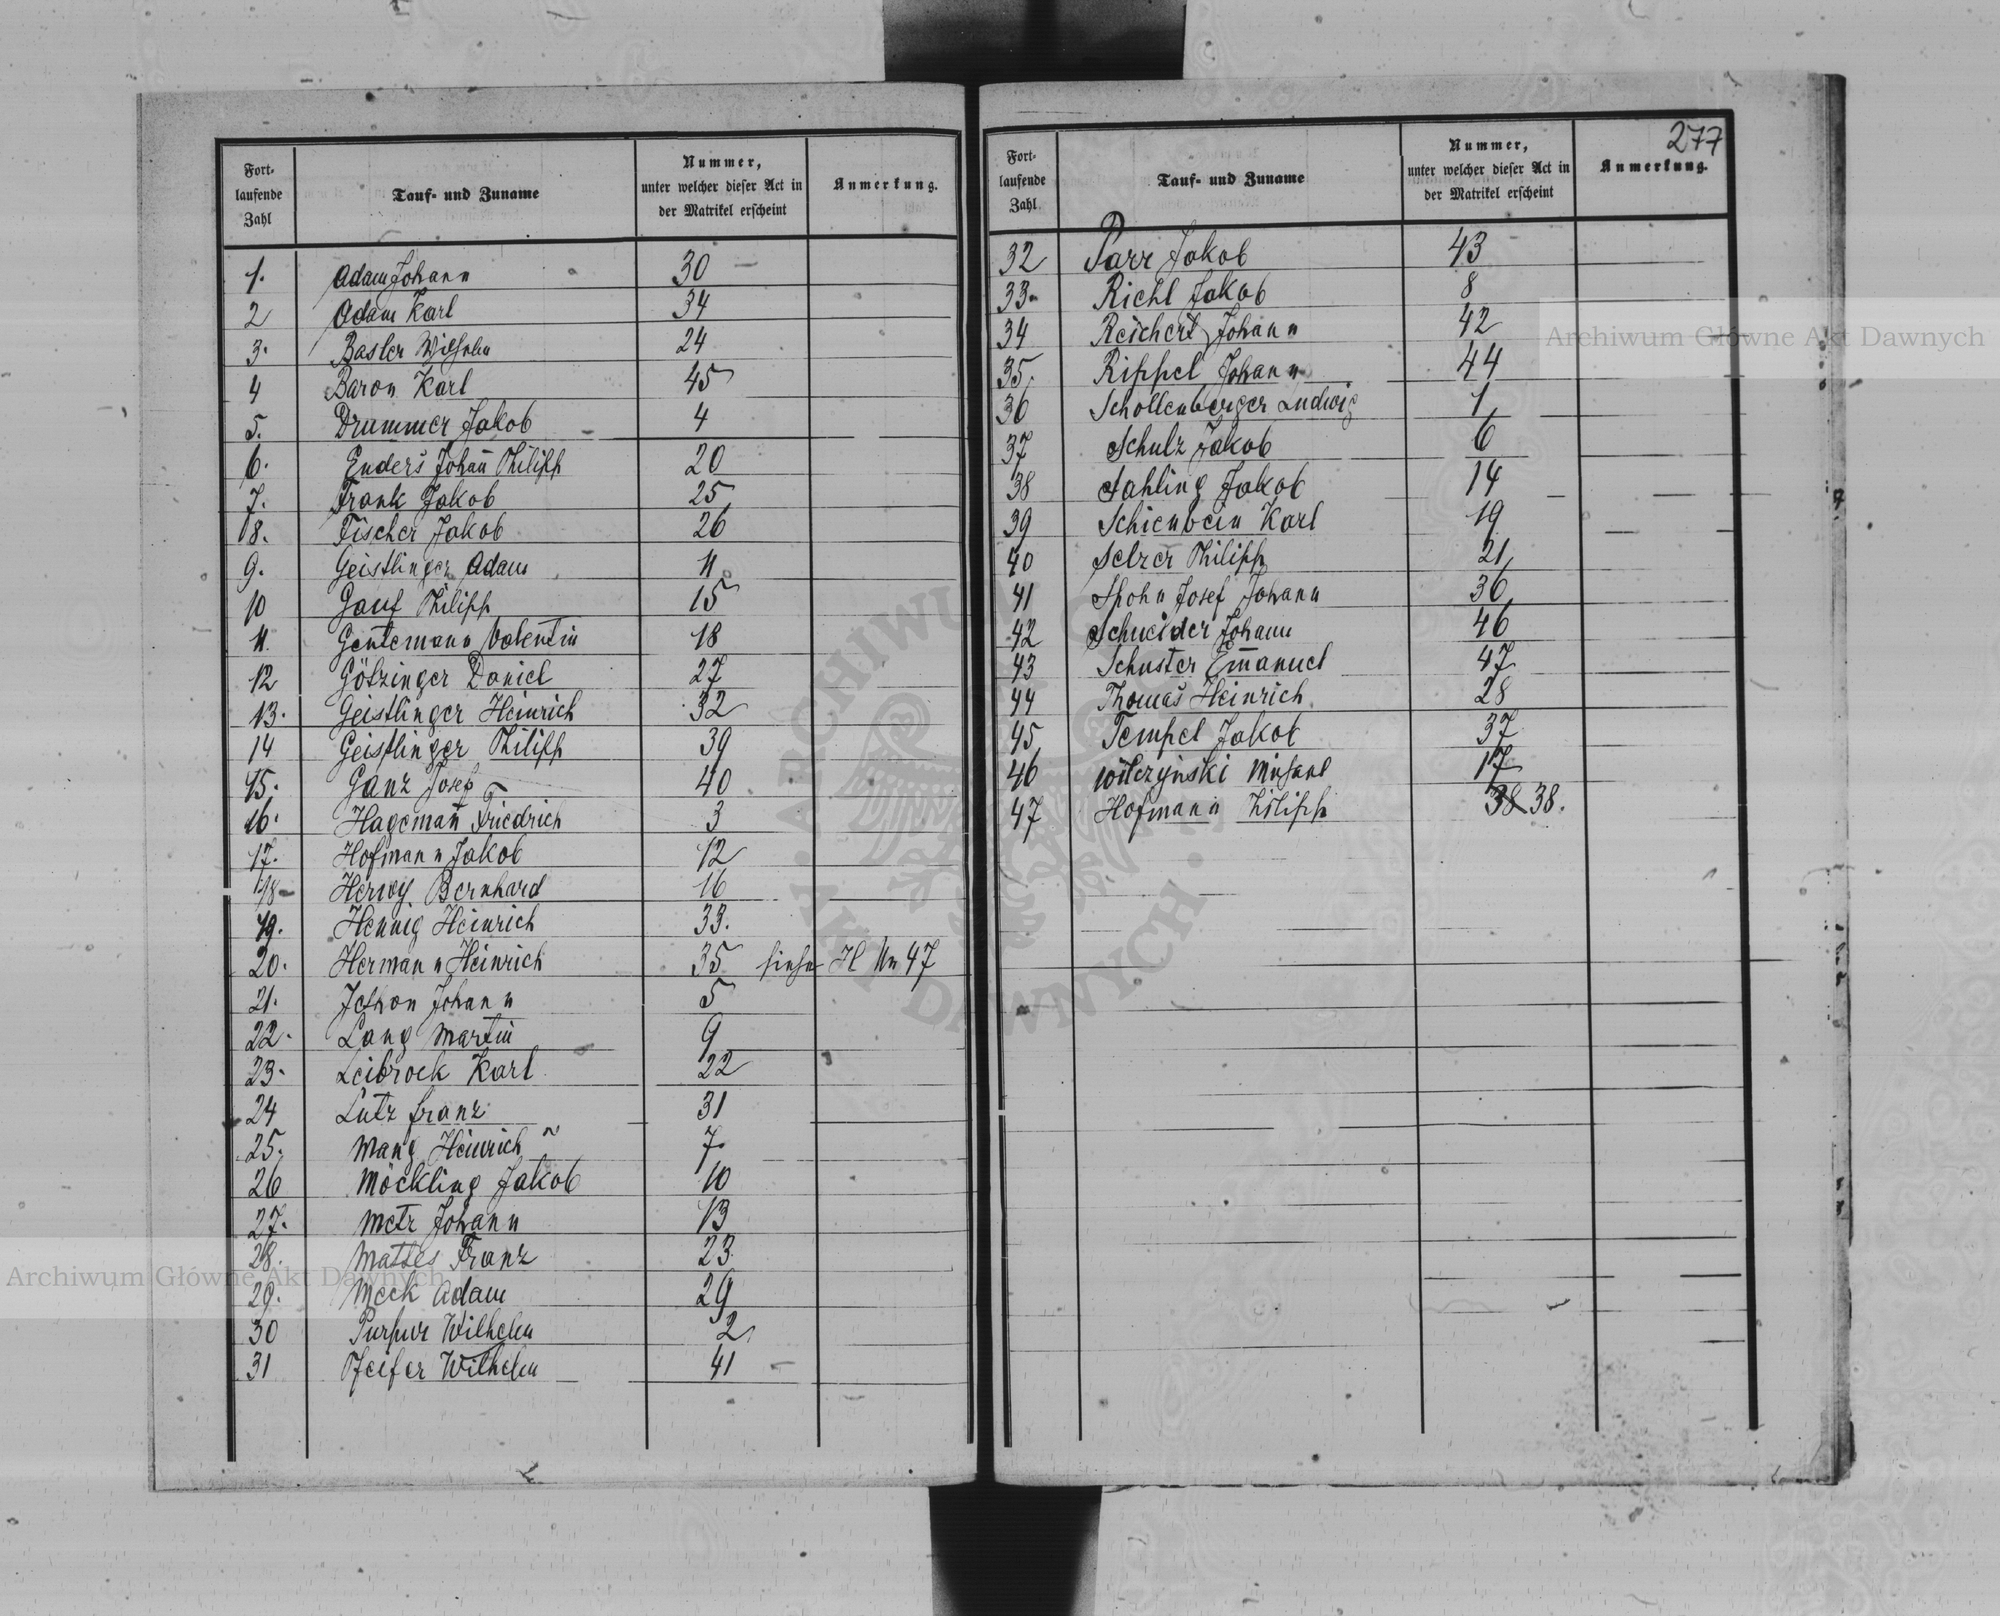 277
Fort-
laufende
Zahl
Tauf- und Zuname
Nummer,
unter welcher dieser Act in
der Matrikel erscheint
Anmerkung.
1. Adam Johann 30
2 Adam Karl 34
3. Basler Wilhelm 24
4 Baron Karl 45
5. Drummer Jakob 4
6. Enders Johann Philipp 20
7. Frank Jakob 25
8. Fischer Jakob 26
9. Geistlinger Adam 11
10 Gauf Philipp 15
11. Gentemann Valentin 18
12 Götzinger Daniel 27
13. Geistlinger Heinrich 32
14 Geistlinger Philipp 39
15. Ganz Josef 40
16. Hageman̄ Friedrich 3
17. Hofmann Jakob 12
18 Hervy Bernhard 16
19. Hennig Heinrich 33.
20. Hermann Heinrich 35 siehe H No 47
21. Jethon Johann 5
22. Lang Martin 9
23. Leibrock Karl 22
24 Lutz Franz 31
25. Mang Heinrich 7
26 Möckling Jakob 10
27. Metz Johann 13
28. Mattes Franz 23
29. Meck Adam 29
30 Wilhelm 2
31 Pfeifer Wilhelm 41
Fort-
laufende
Zahl
Tauf- und Zuname
Nummer,
unter welcher dieser Act in
der Matrikel erscheint
Anmerkung.
32 Parr Jakob 43
33. Richl Jakob 8
34 Reichert Johann 42
35. Rippel Johann 44
36 Schollenberger Ludwig 1
37 Schulz Jakob 6
38 Sahling Jakob 14
39 Schienbein Karl 19
40 Selzer Philipp 21
41 Spohn Josef Johann 36
42 Schneider Johann 46
43 Schuster Em̄anuel 47
44 Thomas Heinrich 28
45 Tempel Jakob 37
46 Wilczyński Michael 17
47 Hofmann Philipp 38 38.
Archiwum Główne Akt Dawnych
Archiwum Główne Akt Dawnych
ARCHIWUM GŁÓWNE AKT DAWNYCH